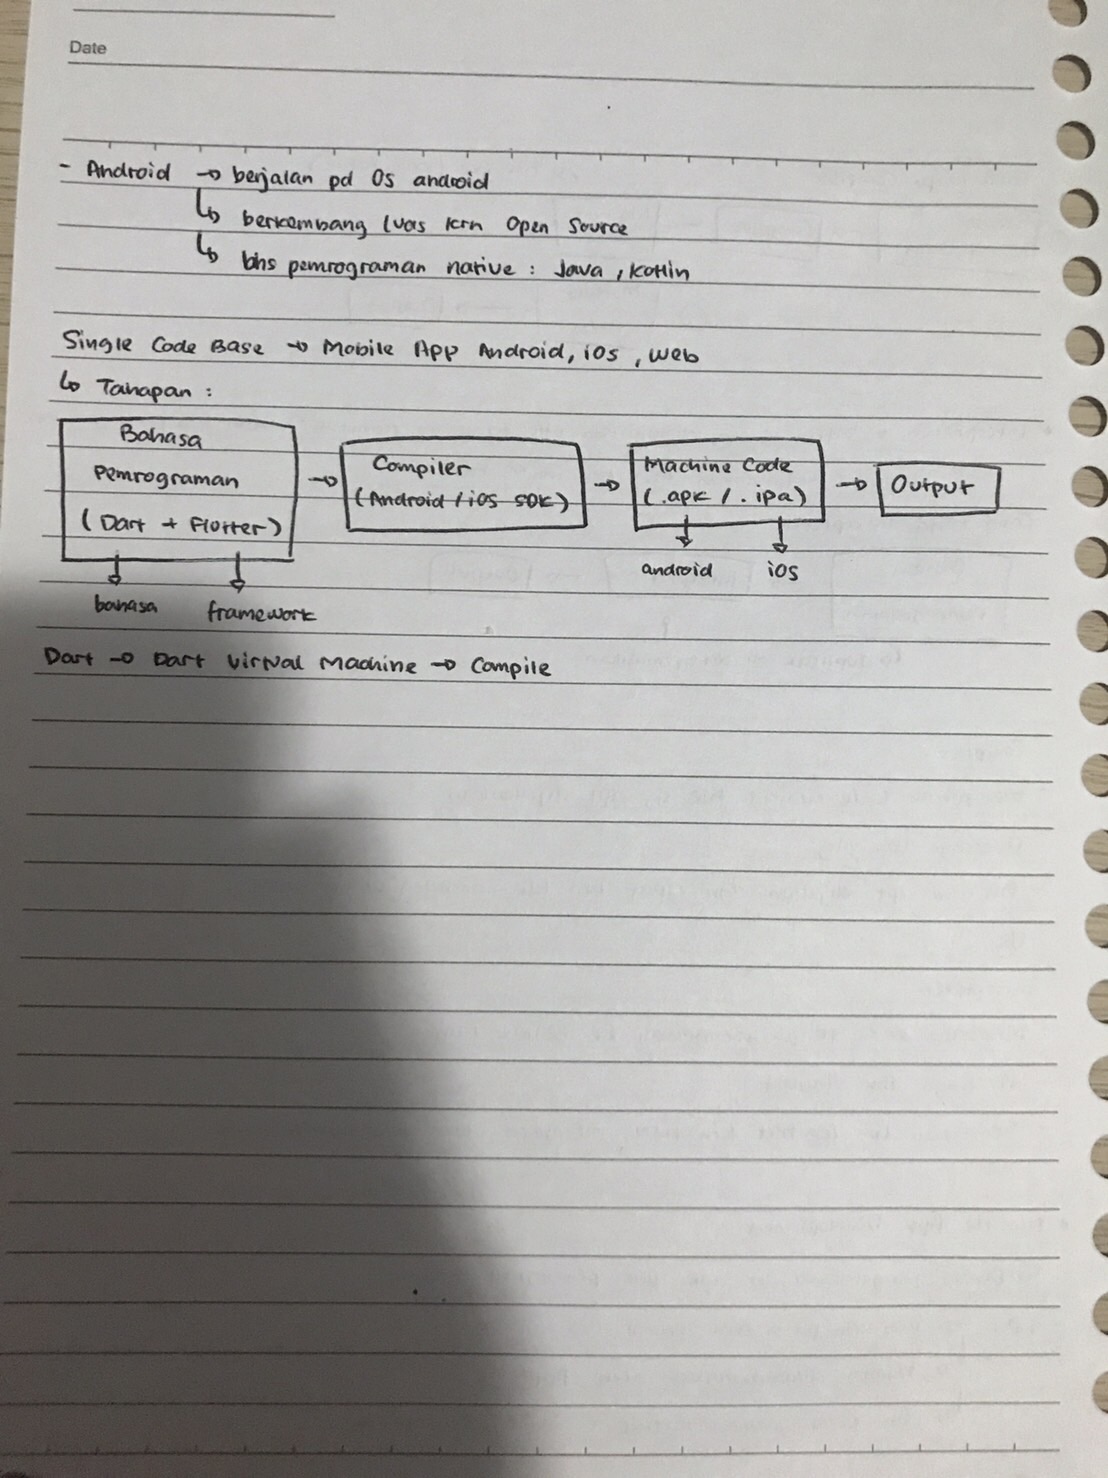 Date
- Android → berjalan pd OS android
↳ berkembang luas krn Open Source
↳ bhs pemrograman native : Java , Kotlin
Single Code Base → Mobile App Android, ios , web
↳ Tahapan :
Bahasa Pemrograman (Dart + Flutter) → Compiler (Android / ios SDK) → Machine Code (.apk / .ipa) → Output
bahasa framework android ios
Dart → Dart Virtual Machine → Compile